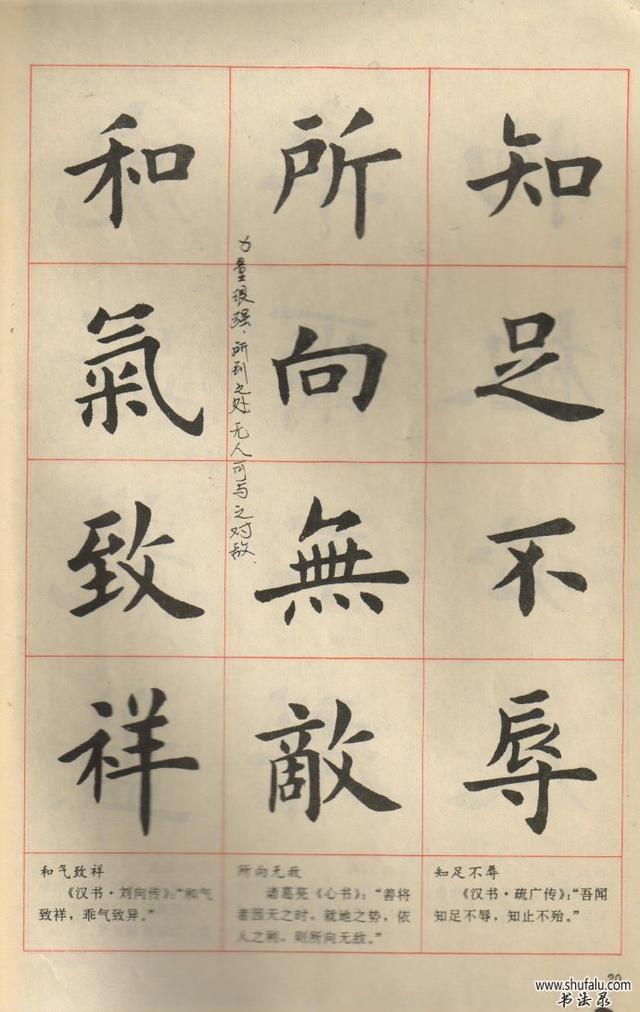 知足不辱
所向無敵
和氣致祥
力量很强，所到之处无人可与之对敌.
知足不辱
《汉书·疏广传》：“吾闻
知足不辱，知止不殆。”
所向无敌
诸葛亮《心书》：“善将
者因天之时，就地之势，依
人之利，则所向无敌。”
和气致祥
《汉书·刘向传》：“和气
致祥，乖气致异。”
20
www.shufalu.com
书法录